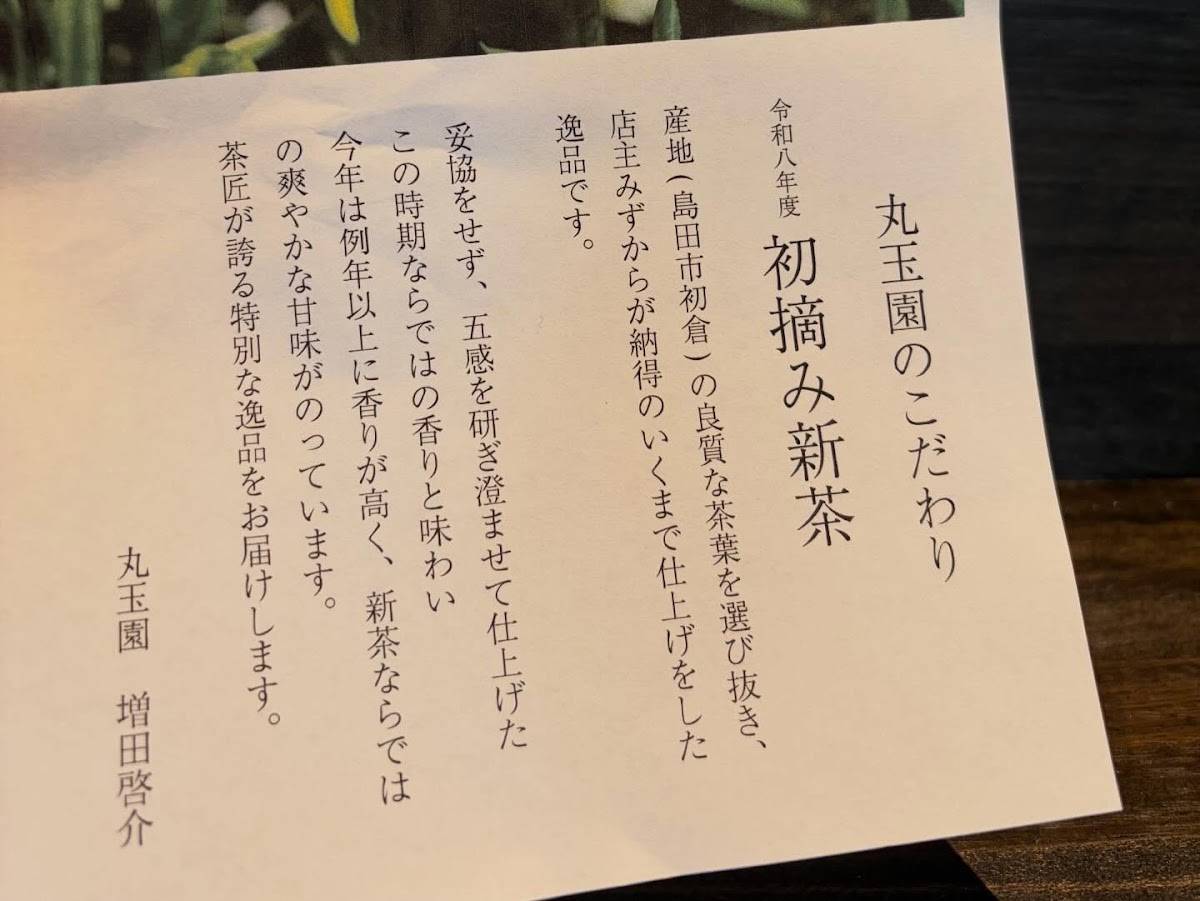 丸玉園のこだわり
令和八年度 初摘み新茶
産地(島田市初倉)の良質な茶葉を選び抜き、
店主みずからが納得のいくまで仕上げをした
逸品です。
妥協をせず、五感を研ぎ澄ませて仕上げた
この時期ならではの香りと味わい
今年は例年以上に香りが高く、新茶ならでは
の爽やかな甘味がのっています。
茶匠が誇る特別な逸品をお届けします。
丸玉園 増田啓介